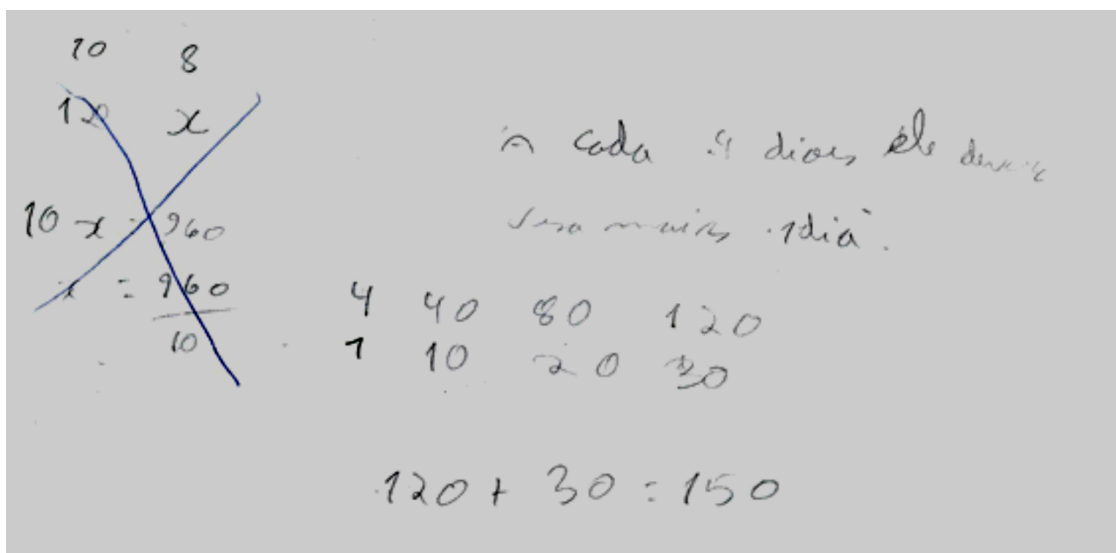 10 8
120 x
10x = 960
x = 960
10
a cada 4 dias ele
mais 1 dia.
4 40 80 120
1 10 20 30
120 + 30 = 150